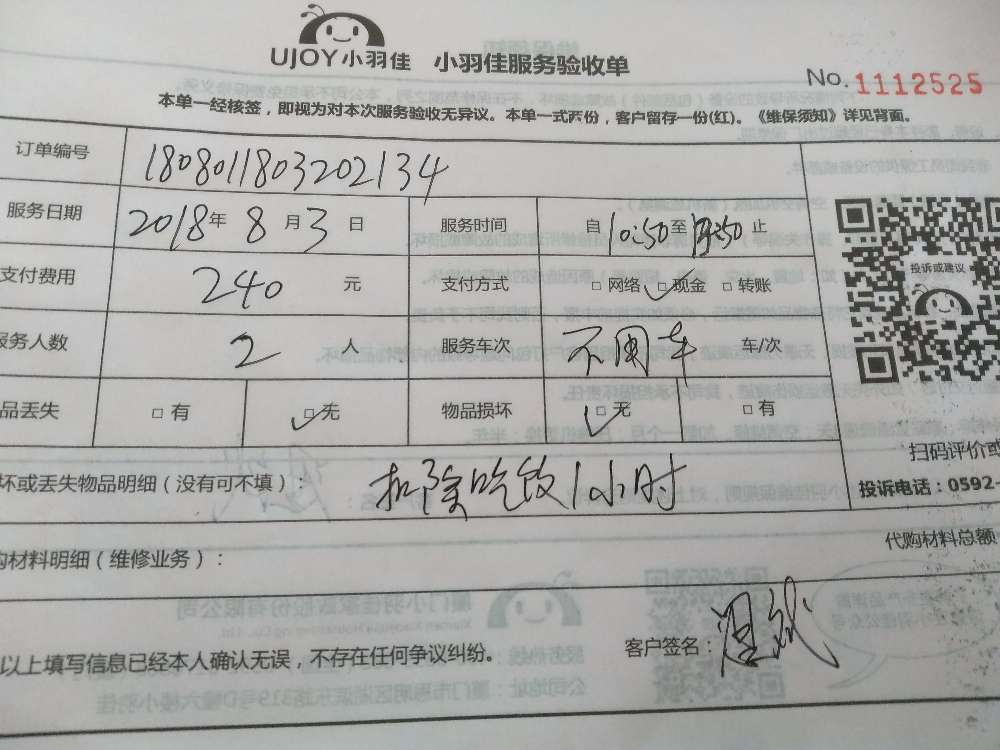 UJOY小羽佳 小羽佳服务验收单
No.1112525
本单一经核签，即视为对本次服务验收无异议。本单一式两份，客户留存一份(红)。《维保须知》详见背面。
订单编号 180801180320 2134
服务日期 2018年 8月3日 服务时间 自10:50至 止
支付费用 240 元 支付方式 □网络 □现金 □转账
服务人数 2 人 服务车次 不用车 车/次
品丢失 □有 □无 物品损坏 □无 □有
投诉或建议
扫码评价或
坏或丢失物品明细（没有可不填）： 扣除吃饭1小时
投诉电话：0592-
购材料明细（维修业务）：
代购材料总额
以上填写信息已经本人确认无误，不存在任何争议纠纷。 客户签名：